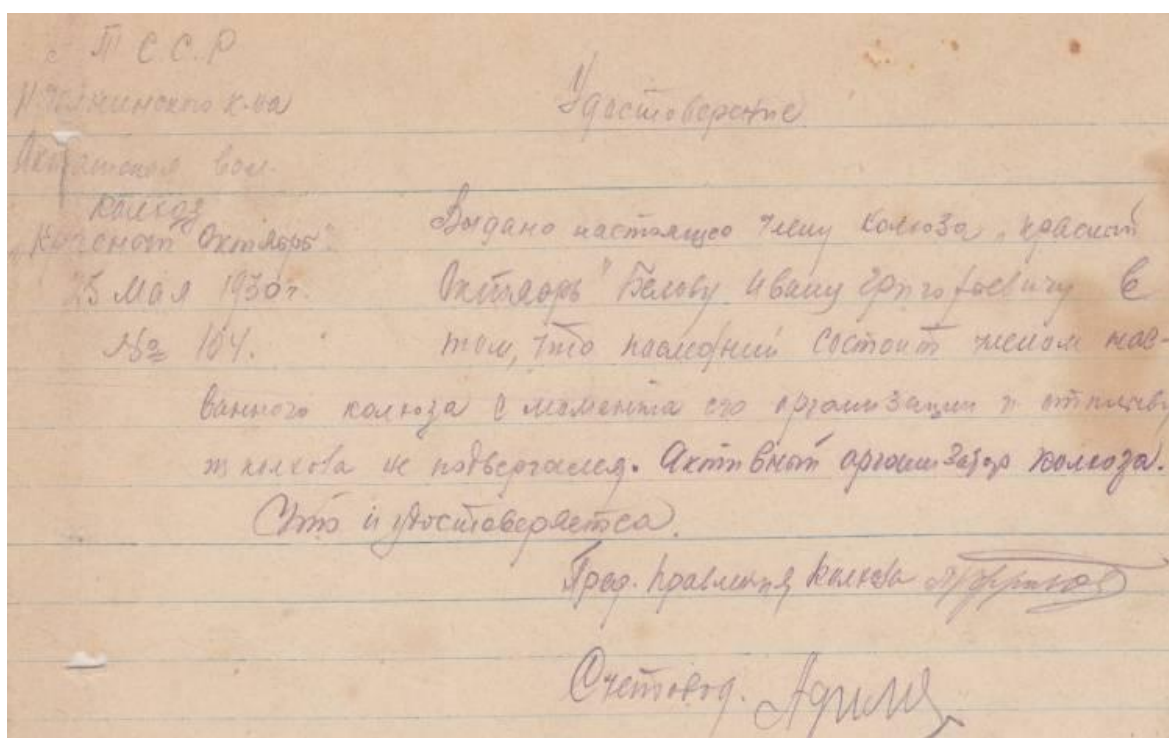 Т С С Р
Н Челнинского к-на
Акташская вол.
колхоз
„Красный Октябрь"
25 Мая 1930 г.
№ 104.
Удостоверение
Выдано настоящее члену колхоза „красный
Октябрь" Белову Ивану Григорьевичу в
том, что последний состоит членом наз-
ванного колхоза с момента его организации и
из колхоза не подвергался. Активный организатор колхоза.
Что и удостоверяется.
Пред. правления колхоза
Счетовод.